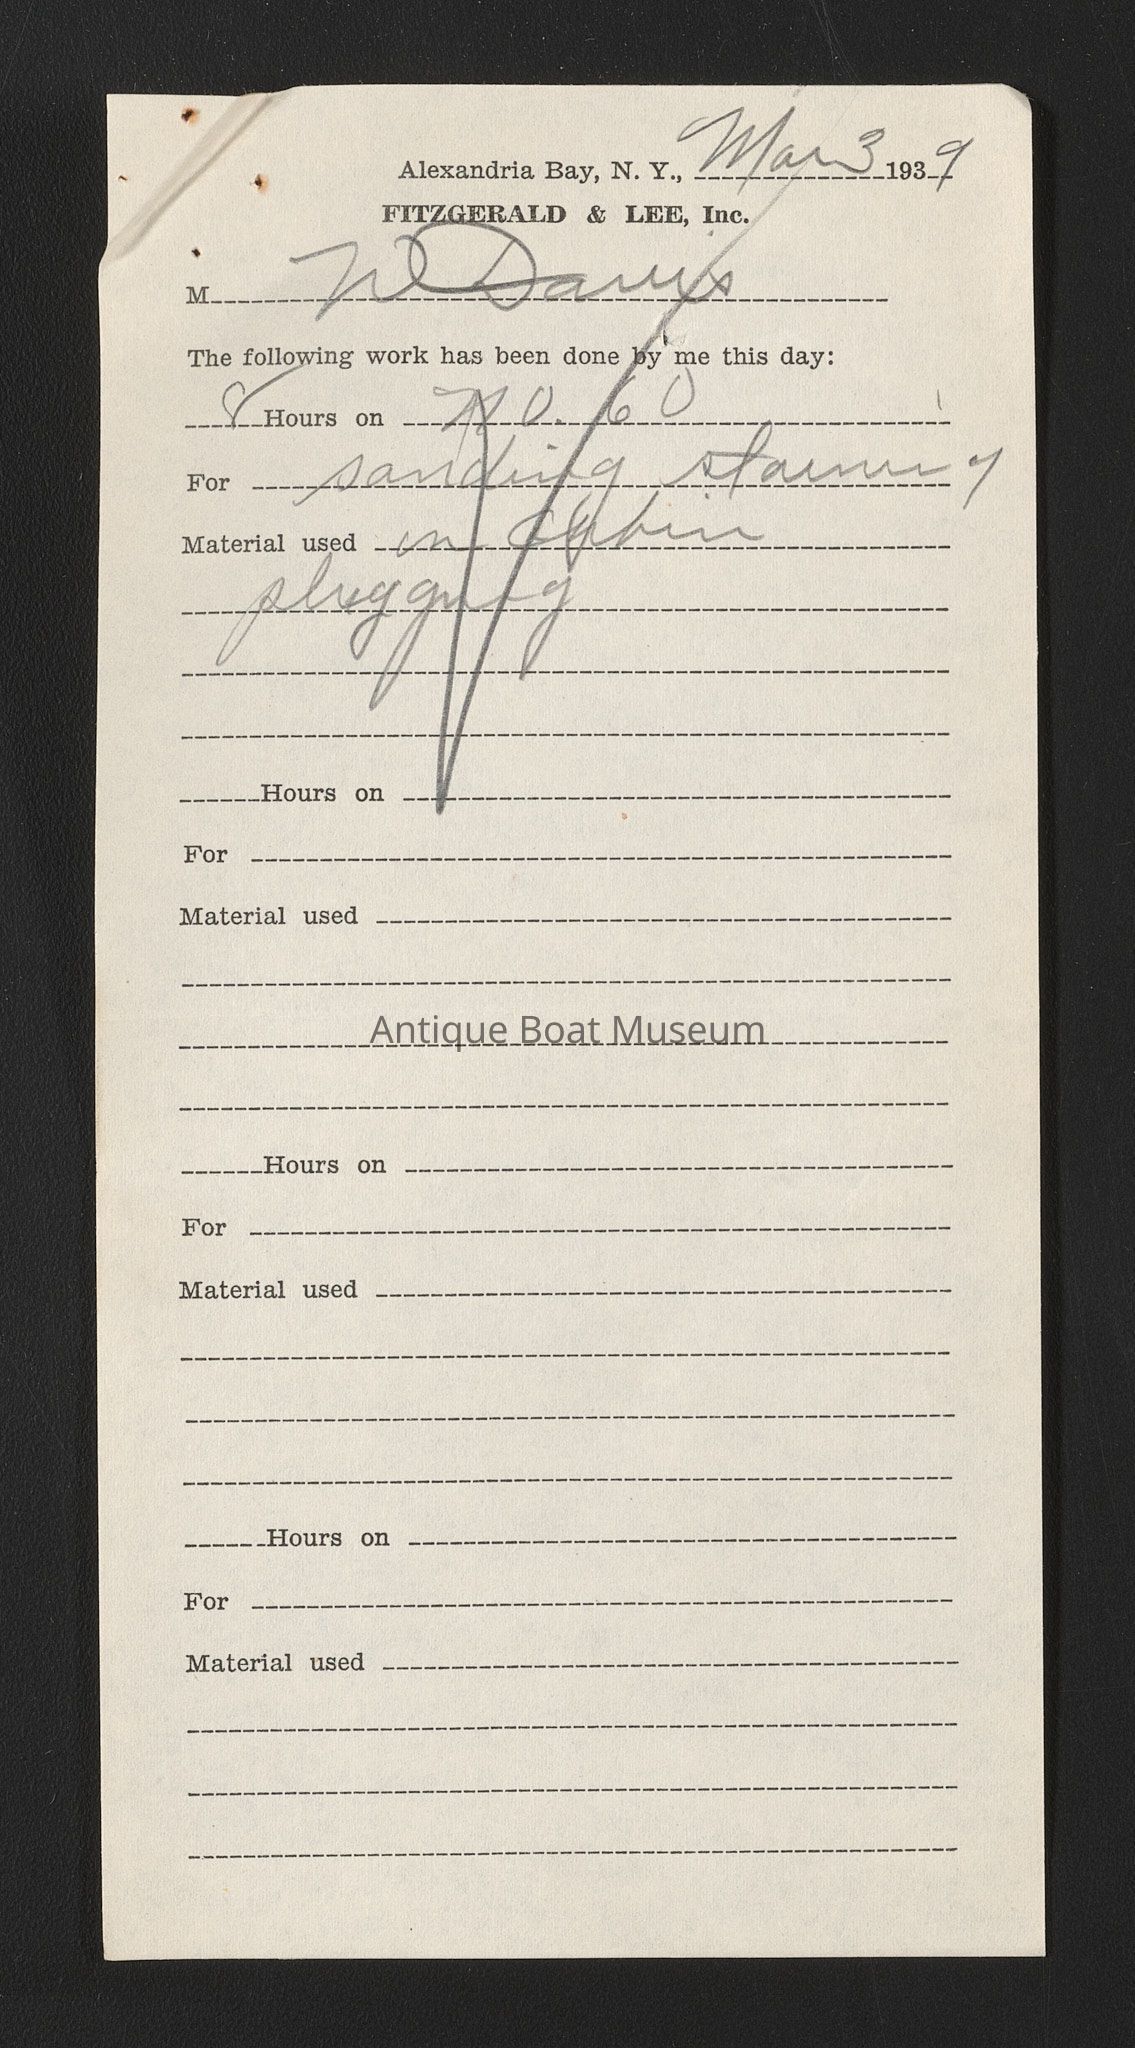 Alexandria Bay, N. Y., Mar 3 1939
FITZGERALD & LEE, Inc.
M W Davis
The following work has been done by me this day:
8 Hours on No. 60
For sanding staining
Material used in Cabin
plugging
Hours on
For
Material used
Antique Boat Museum
Hours on
For
Material used
Hours on
For
Material used